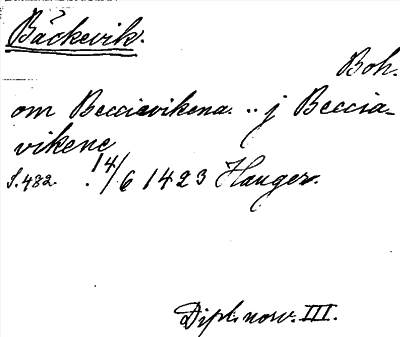 Bäckevik.
Boh.
om Becciævikena. .. j Beccia-
vikene
S. 482. . 14/6 1423 Hauger.
Dipl. norv. III.